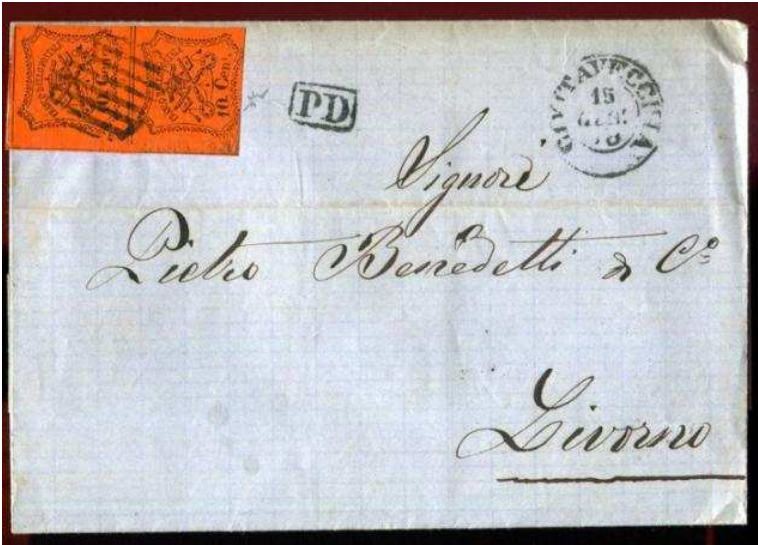 10 Cent.
PD
CIVITAVECCHIA
15
Signore
Pietro Benedetti & Cº
Livorno